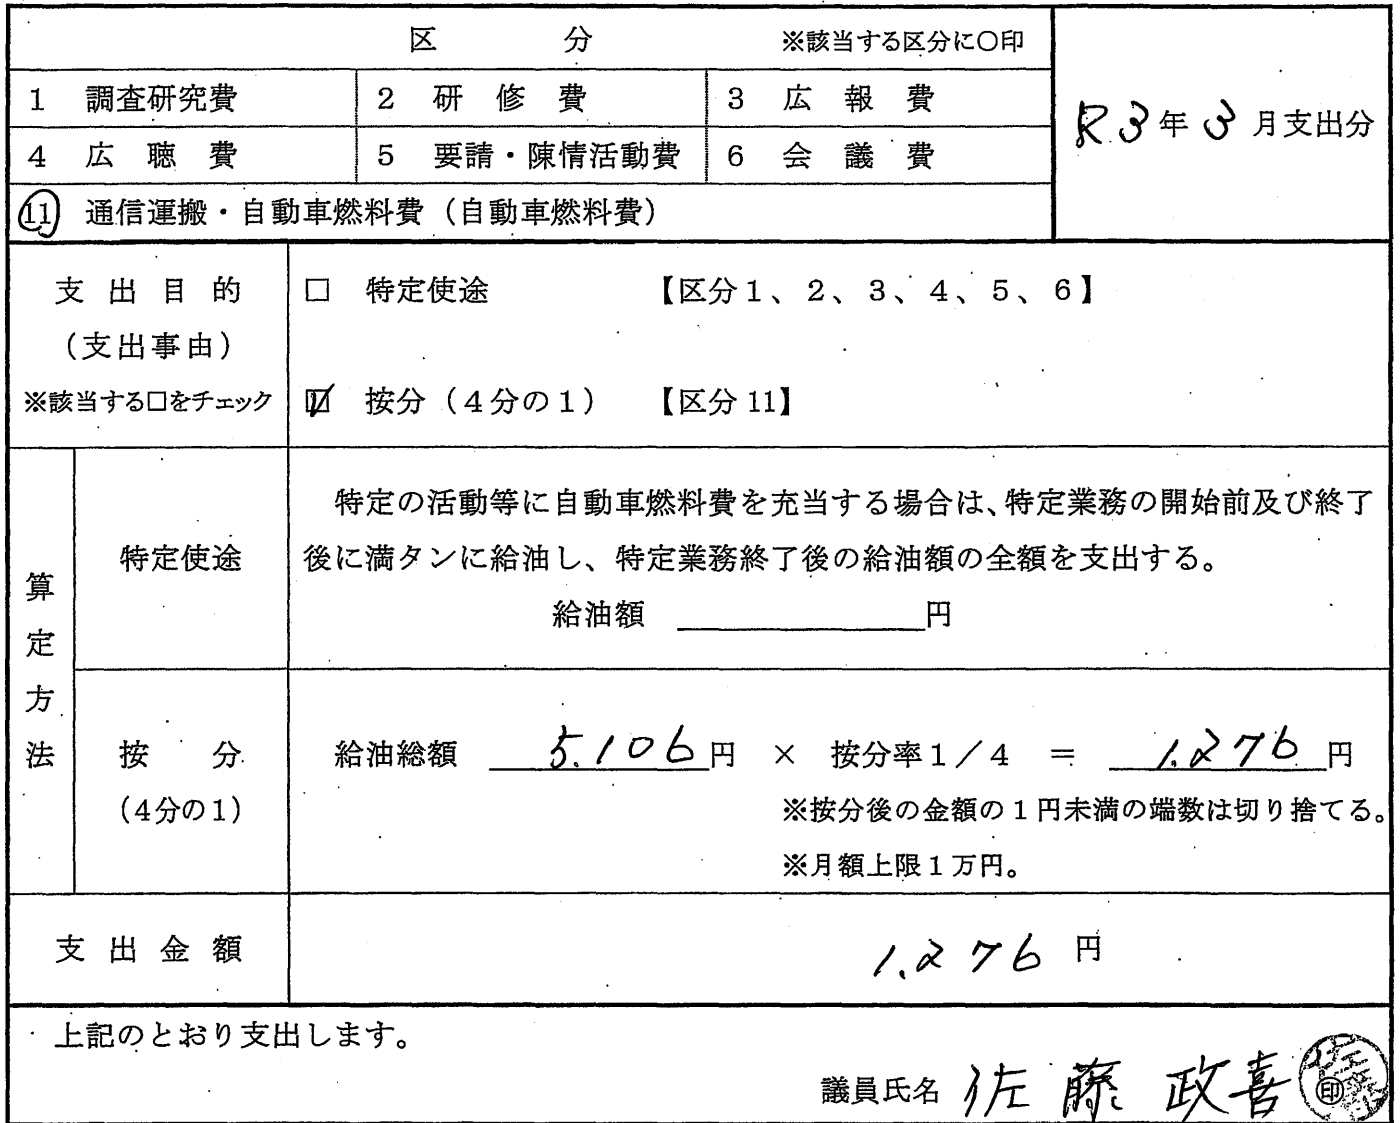 区 分 ※該当する区分に○印
1 調査研究費 2 研修費 3 広報費
R3年3月支出分
4 広聴費 5 要請・陳情活動費 6 会議費
11 通信運搬・自動車燃料費（自動車燃料費）
支出目的
（支出事由）
※該当する□をチェック
□ 特定使途 【区分1、2、3、4、5、6】
☑ 按分（4分の1） 【区分11】
算定方法
特定使途
特定の活動等に自動車燃料費を充当する場合は、特定業務の開始前及び終了
後に満タンに給油し、特定業務終了後の給油額の全額を支出する。
給油額 円
按分
（4分の1）
給油総額 5.106円 × 按分率1／4 ＝ 1.276円
※按分後の金額の1円未満の端数は切り捨てる。
※月額上限1万円。
支出金額 1.276円
上記のとおり支出します。
議員氏名 佐藤 政喜 印